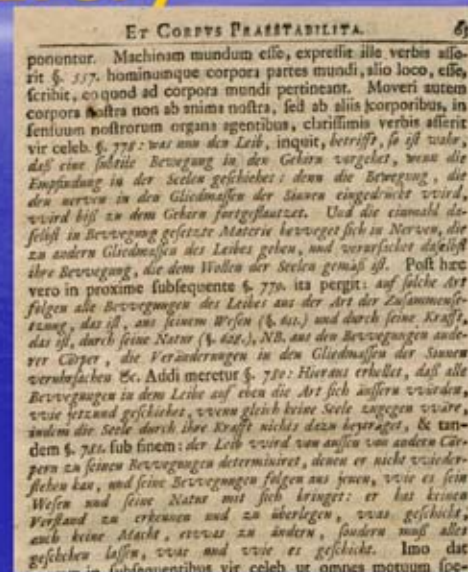 ET CORPVS PRAESTABILITA. 65
ponuntur. Machinam mundum esse, expressit ille verbis asse-
rit §. 557. hominumque corpora partes mundi, alio loco, esse,
scribit, eo quod ad corpora mundi pertineant. Moveri autem
corpora nostra non ab anima nostra, sed ab aliis corporibus, in
sensuum nostrorum organa agentibus, clarissimis verbis asserit
vir celeb. §. 778: was nun den Leib, inquit, betrifft, so ist wahr,
daß eine subtile Bewegung in den Gehirn vorgehet, wenn die
Empfindung in der Seelen geschiehet: denn die Bewegung, die
den nerven in den Gliedmassen der Sinnen eingedrückt wird,
wird biß zu dem Gehirn fortgeflantzet. Und die einmahl da-
selbst in Bewegung gesetzte Materie beweget sich in Nerven, die
zu andern Gliedmassen des Leibes gehen, und verursachet daselbst
ihre Bewegung, die dem Wollen der Seelen gemäß ist. Post hæc
vero in proxime subsequente §. 779. ita pergit: auf solche Art
folgen alle Bewegungen des Leibes aus der Art der Zusammense-
tzung, das ist, aus seinem Wesen (§. 611.) und durch seine Krafft,
das ist, durch seine Natur (§. 628.), NB. aus den Bewegungen ande-
rer Cörper, die Veränderungen in den Gliedmassen der Sinnen
veruhrsachen &c. Addi meretur §. 780: Hieraus erhellet, daß alle
Bewegungen in dem Leibe auf eben die Art sich äussern würden,
wie jetzund geschiehet, wenn gleich keine Seele zugegen wäre,
indem die Seele durch ihre Krafft nichts dazu beyträget, & tan-
dem §. 781. sub finem: der Leib wird von aussen von andern Cör-
pern zu seinen Bewegungen determiniret, denen er nicht wieder-
stehen kan, und seine Bewegungen folgen aus jenen, wie es sein
Wesen und seine Natur mit sich bringet: er hat keinen
Verstand zu erkennen und zu überlegen, was geschicht,
auch keine Macht, etwas zu ändern, sondern muß alles
geschehen lassen, was und wie es geschicht. Imo dat
in subsequentibus vir celeb. ut omnes motuum spe-